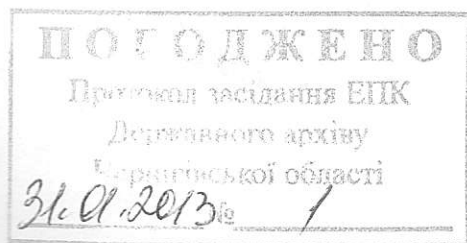 ПОГОДЖЕНО
Протокол засідання ЕПК
Державного архіву
Чернігівської області
31.01.2013 № 1